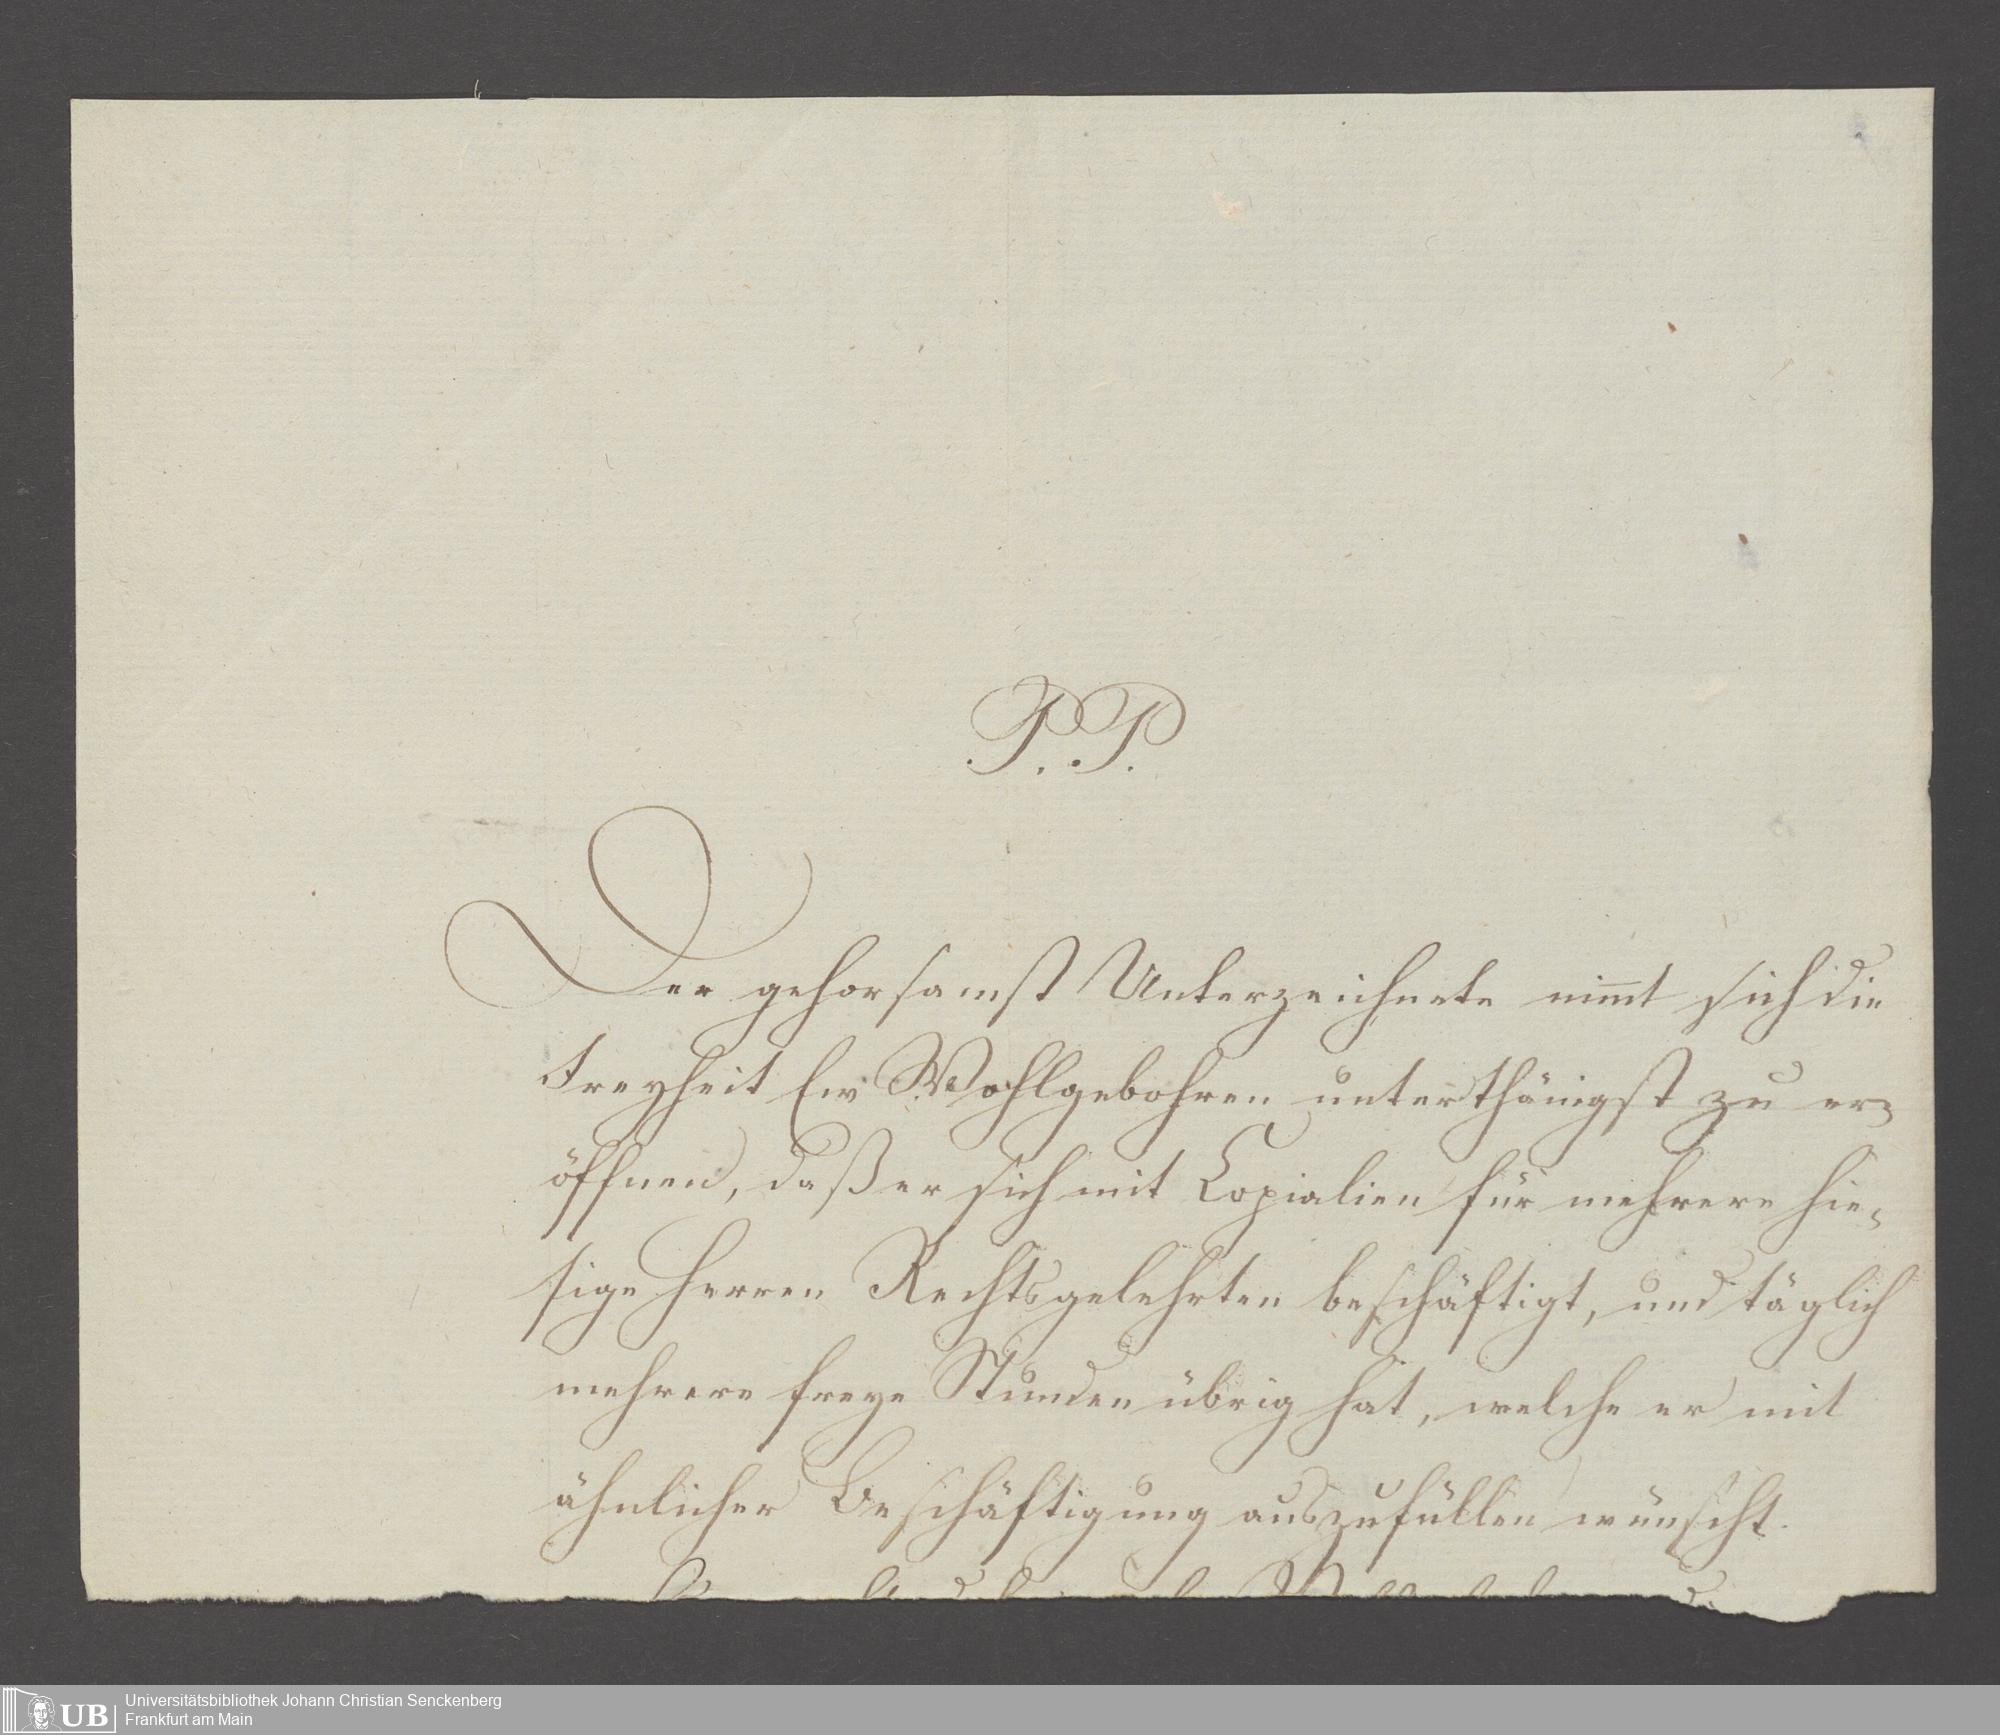 P. P.
Der gehorsamst Unterzeichnete nim̄t sich die
Freyheit Ew Wohlgebohren unterthänigst zu er=
öffnen, daß er sich mit Copialien für mehrere hie=
sige Herren Rechtsgelehrten beschäftigt, und täglich
mehrere freye Stunden übrig hat, welche er mit
ähnlicher Beschäftigung auszufüllen wünscht.
UB
Universitätsbibliothek Johann Christian Senckenberg
Frankfurt am Main